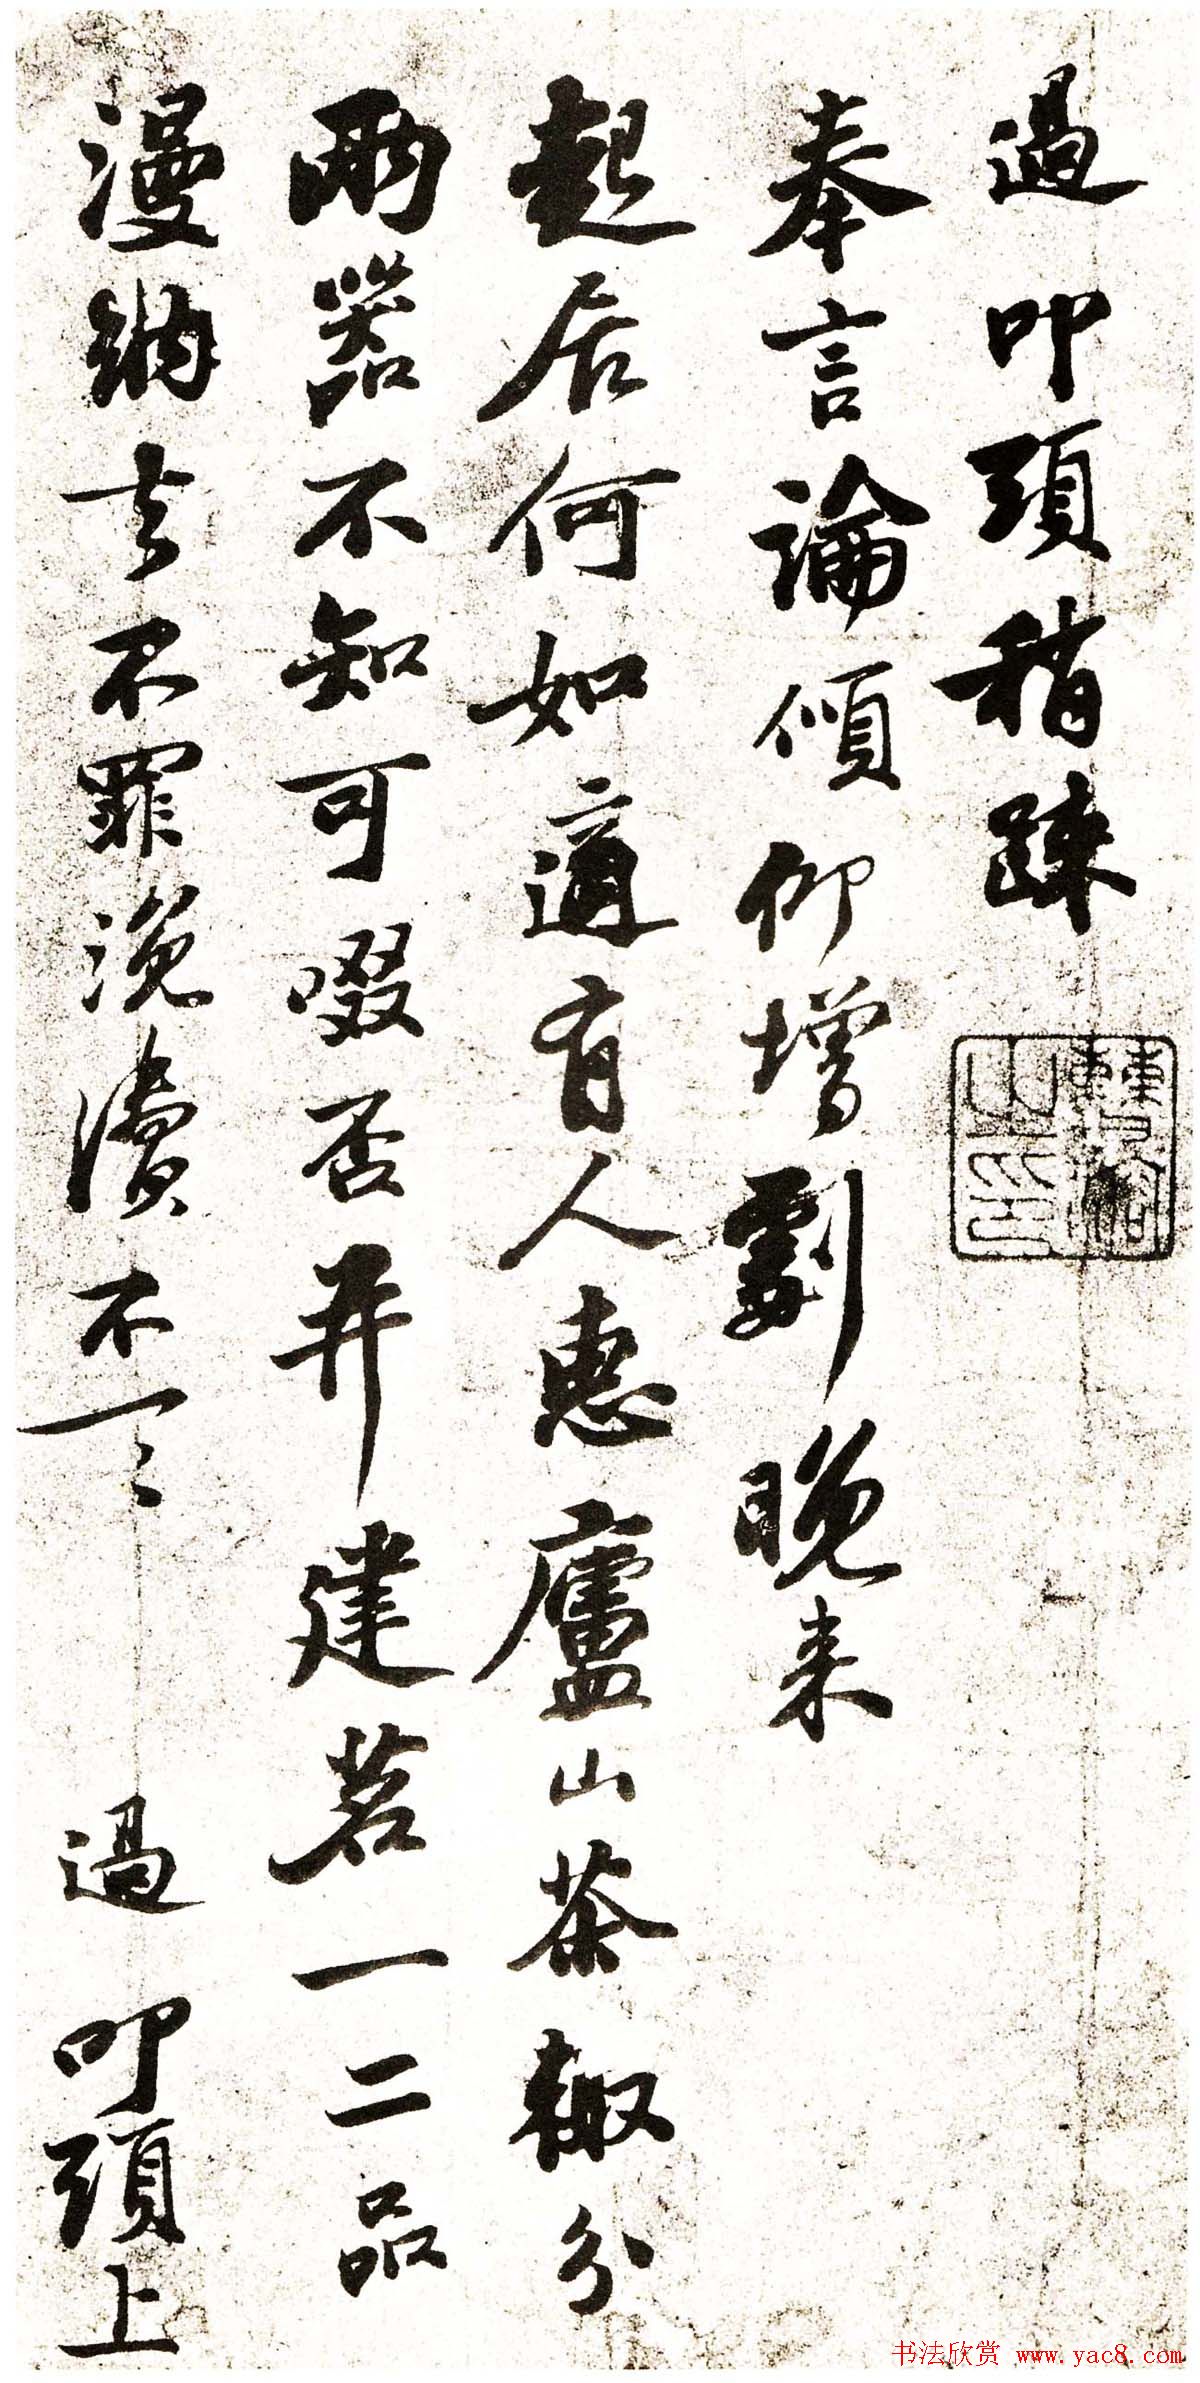 過叩頭稍疎
奉言論傾仰增劇晚來
起居何如適有人惠廬山茶輙分
兩器不知可啜否并建茗一二品
漫納去不罪浼瀆不一一
過叩頭上
书法欣赏 www.yac8.com